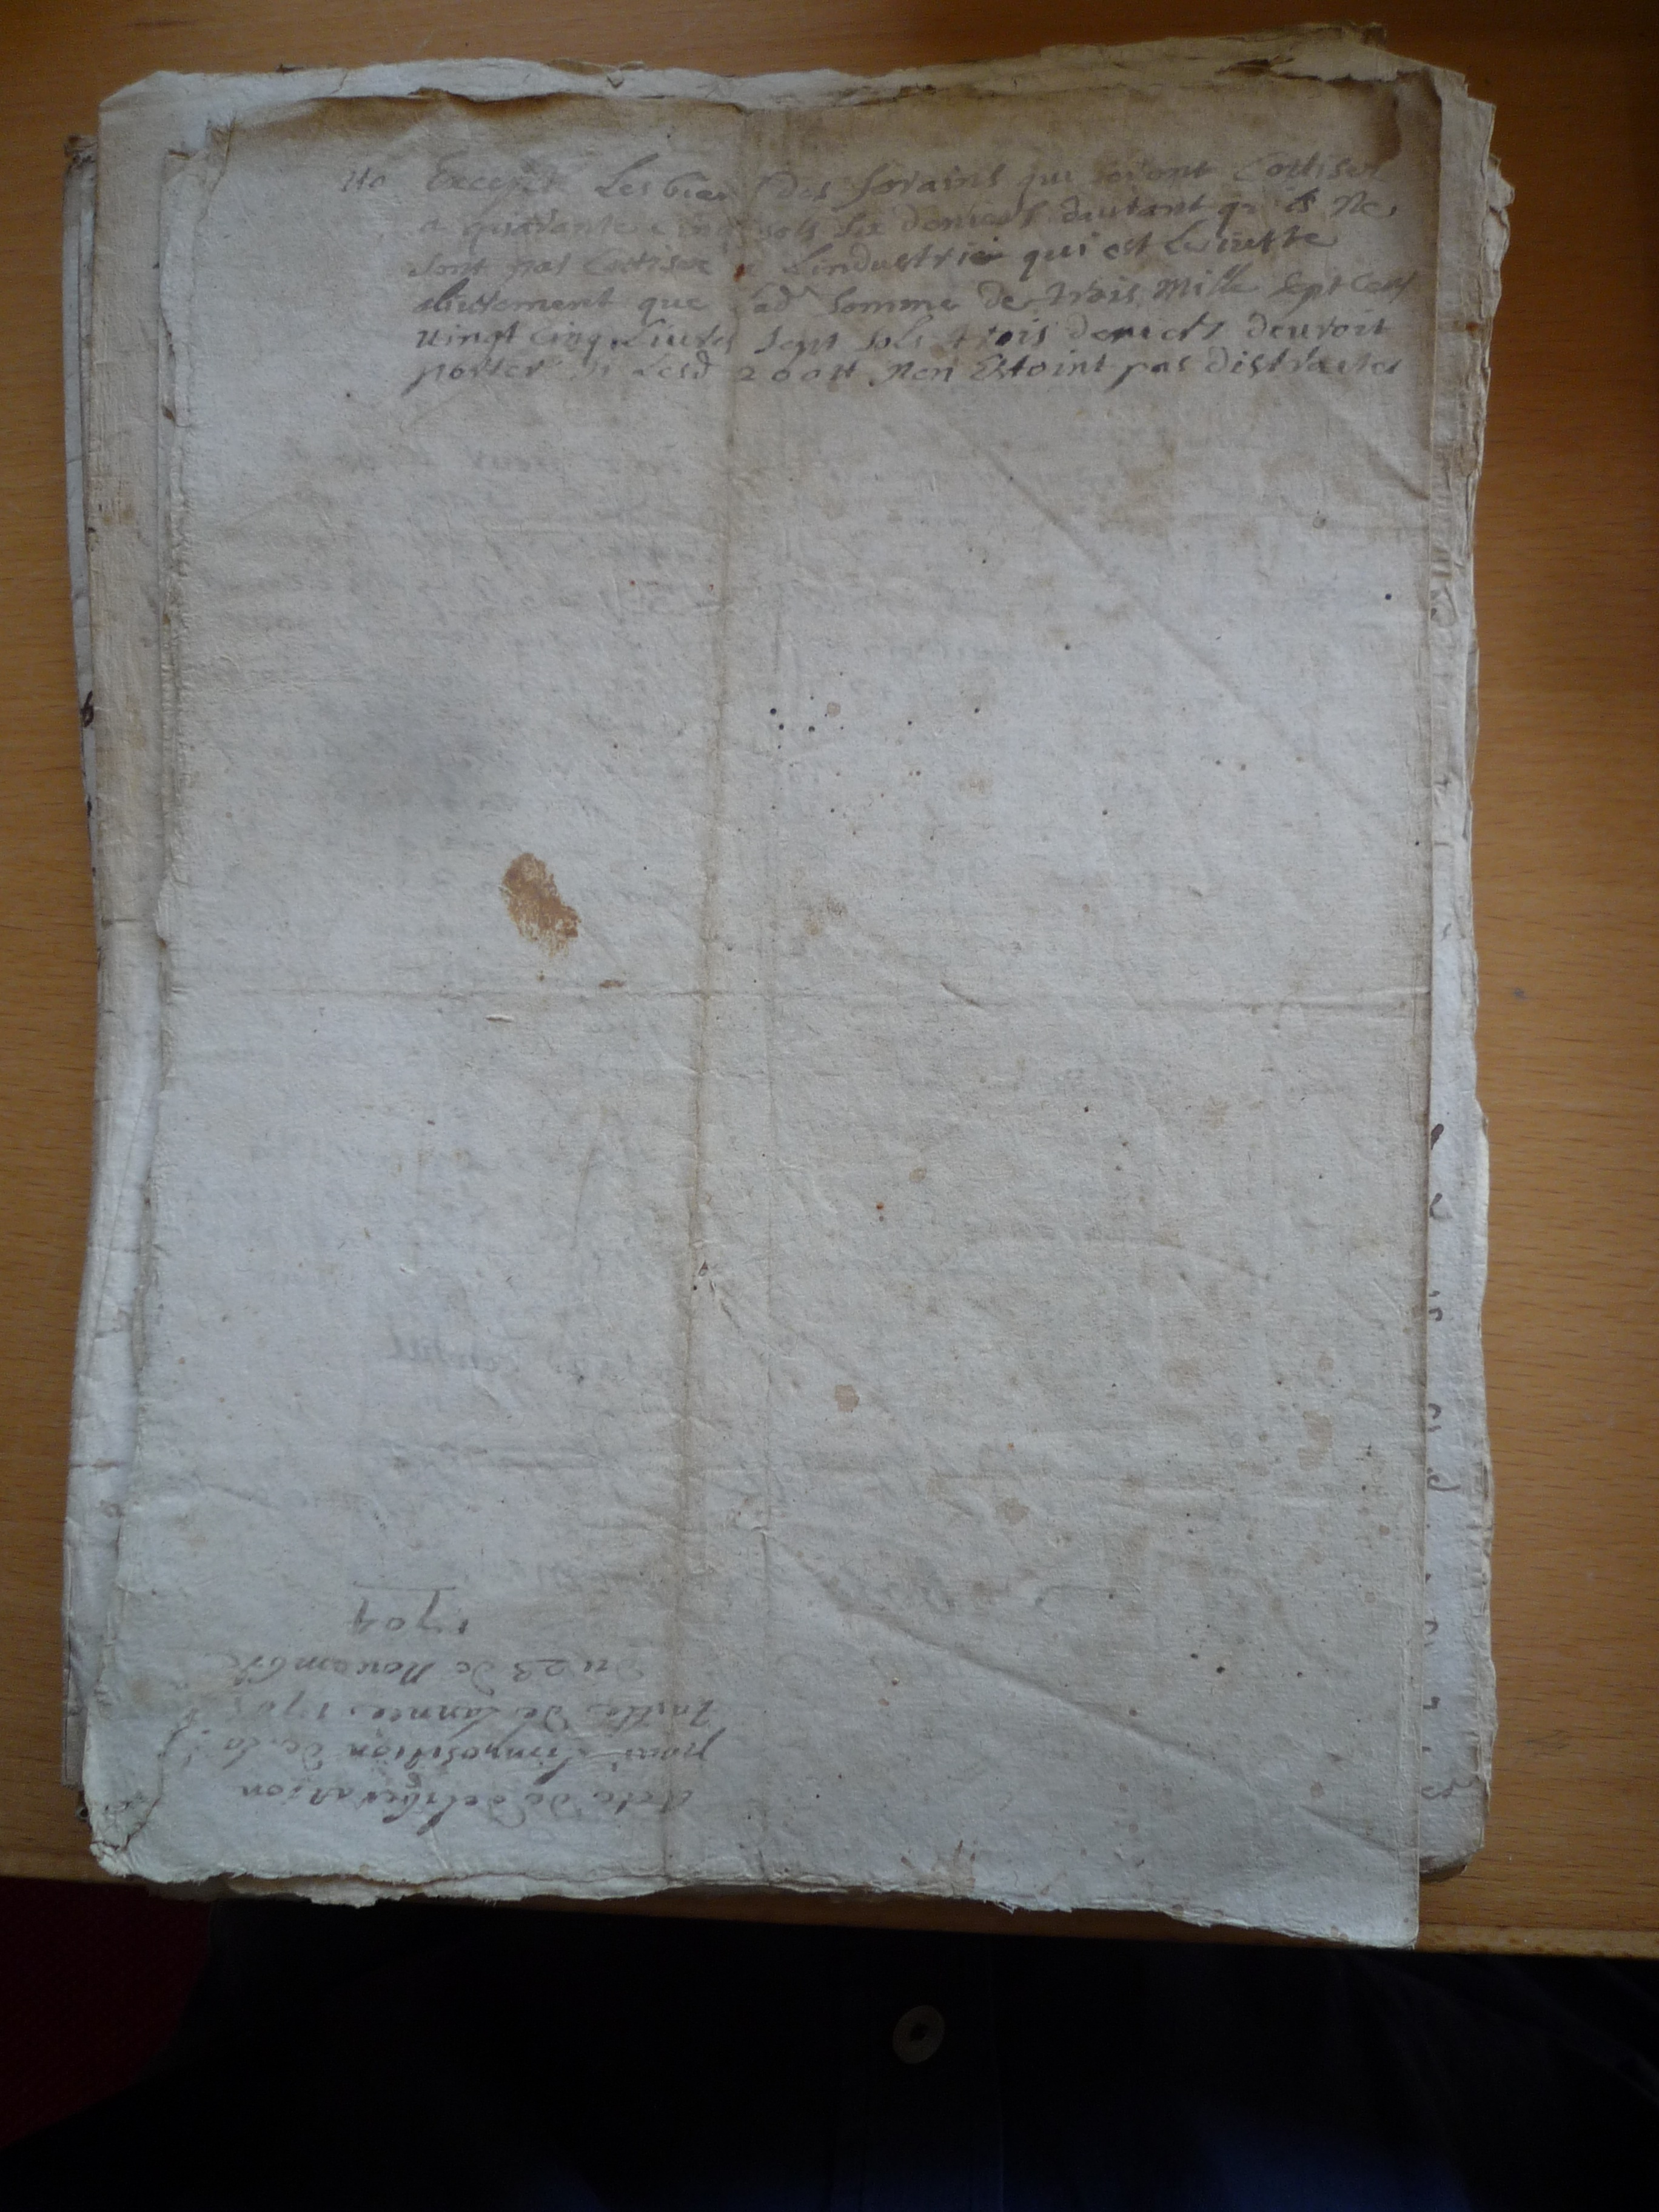 Excepte Les bien Des forains qui seront Cottises
a quarante cinq sols six deniers dautant qu'ils Ne
sont pas Cottises a Lindustrie qui est Le iuste
aliurement que Lad somme de trois Mille Sept Cens
uingt cinq Liures sept sols trois deniers deuroit
porter si Lesd 200tt Nen Estoint pas distraites
Acte de deliberation
pour L'imposition de La
Taille De Lannee 1705
Du 23 de Nouembre
1704